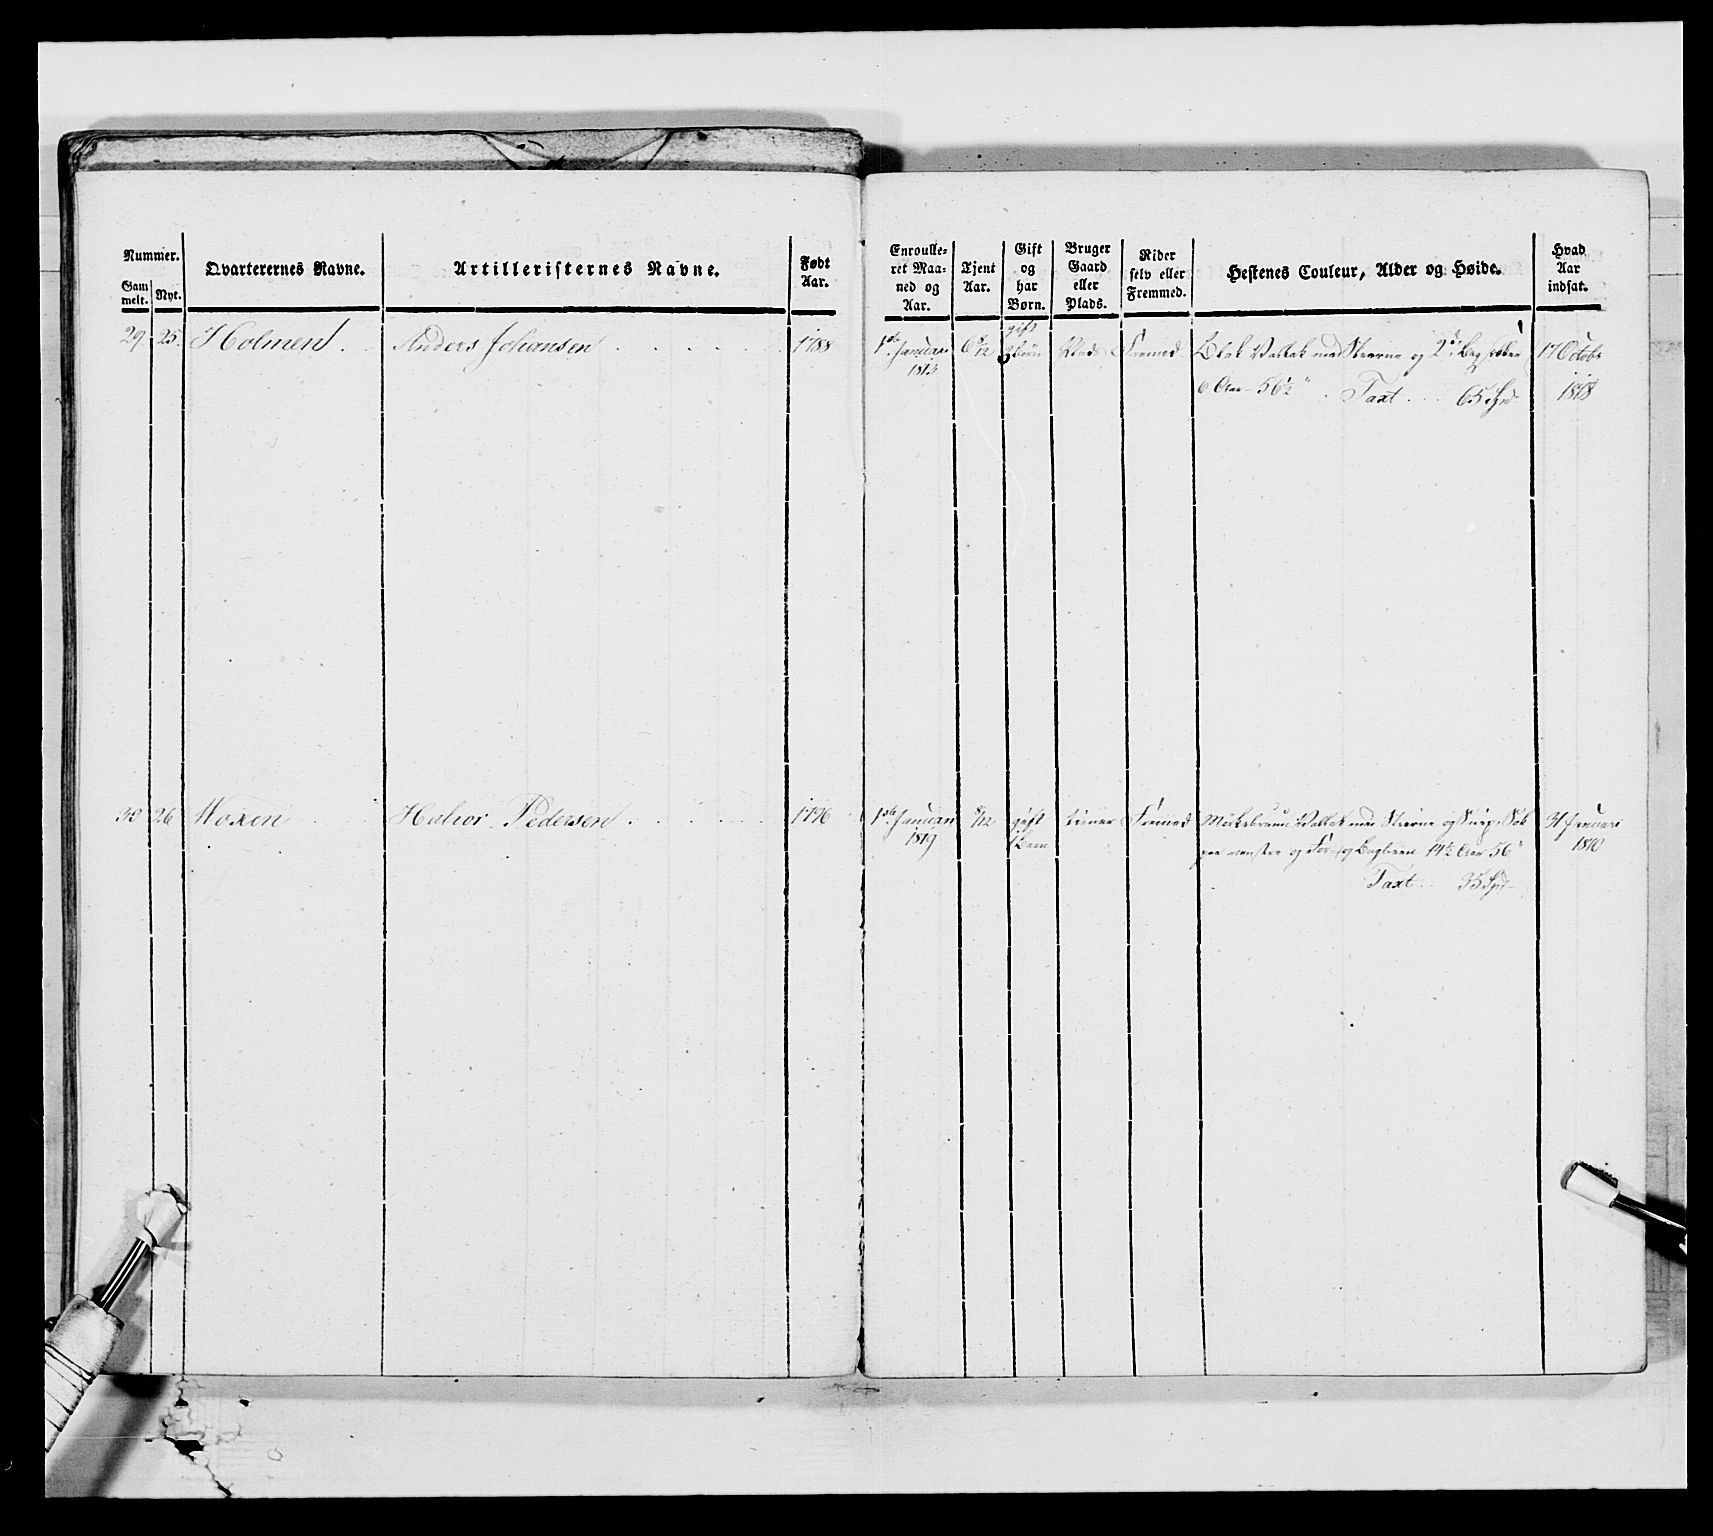 Nummer.
Gam
melt.
Nyt.
Qvarterernes Navne.
Artilleristernes Navne.
Født
Aar.
Enroulle=
ret Maa=
ned og
Aar.
Tjent
Aar.
Gift
og
har
Børn.
Bruger
Gaard
eller
Plads.
Rider
selv eller
Fremmed.
Hestenes Couleur, Alder og Høide.
Hvad
Aar
indsat.
29 25. Holmen Anders Johansen 1788 1ste Januar 6 gift Plads Fremed Blak Vallak med Stierne og 2de
1813 Børn
6 Aar 56½" Taxt 65 Spd. 17 Octobr
1818
30 26 Woxen Halvor Pedersen 1796 1ste Januari 8/12 gift tiener Fremed Vallak med Stierne og Snip,
1819 1 Barn
venstre og For og Bagbeen 14½ Aar 56"
Taxt 35 Spd Januari